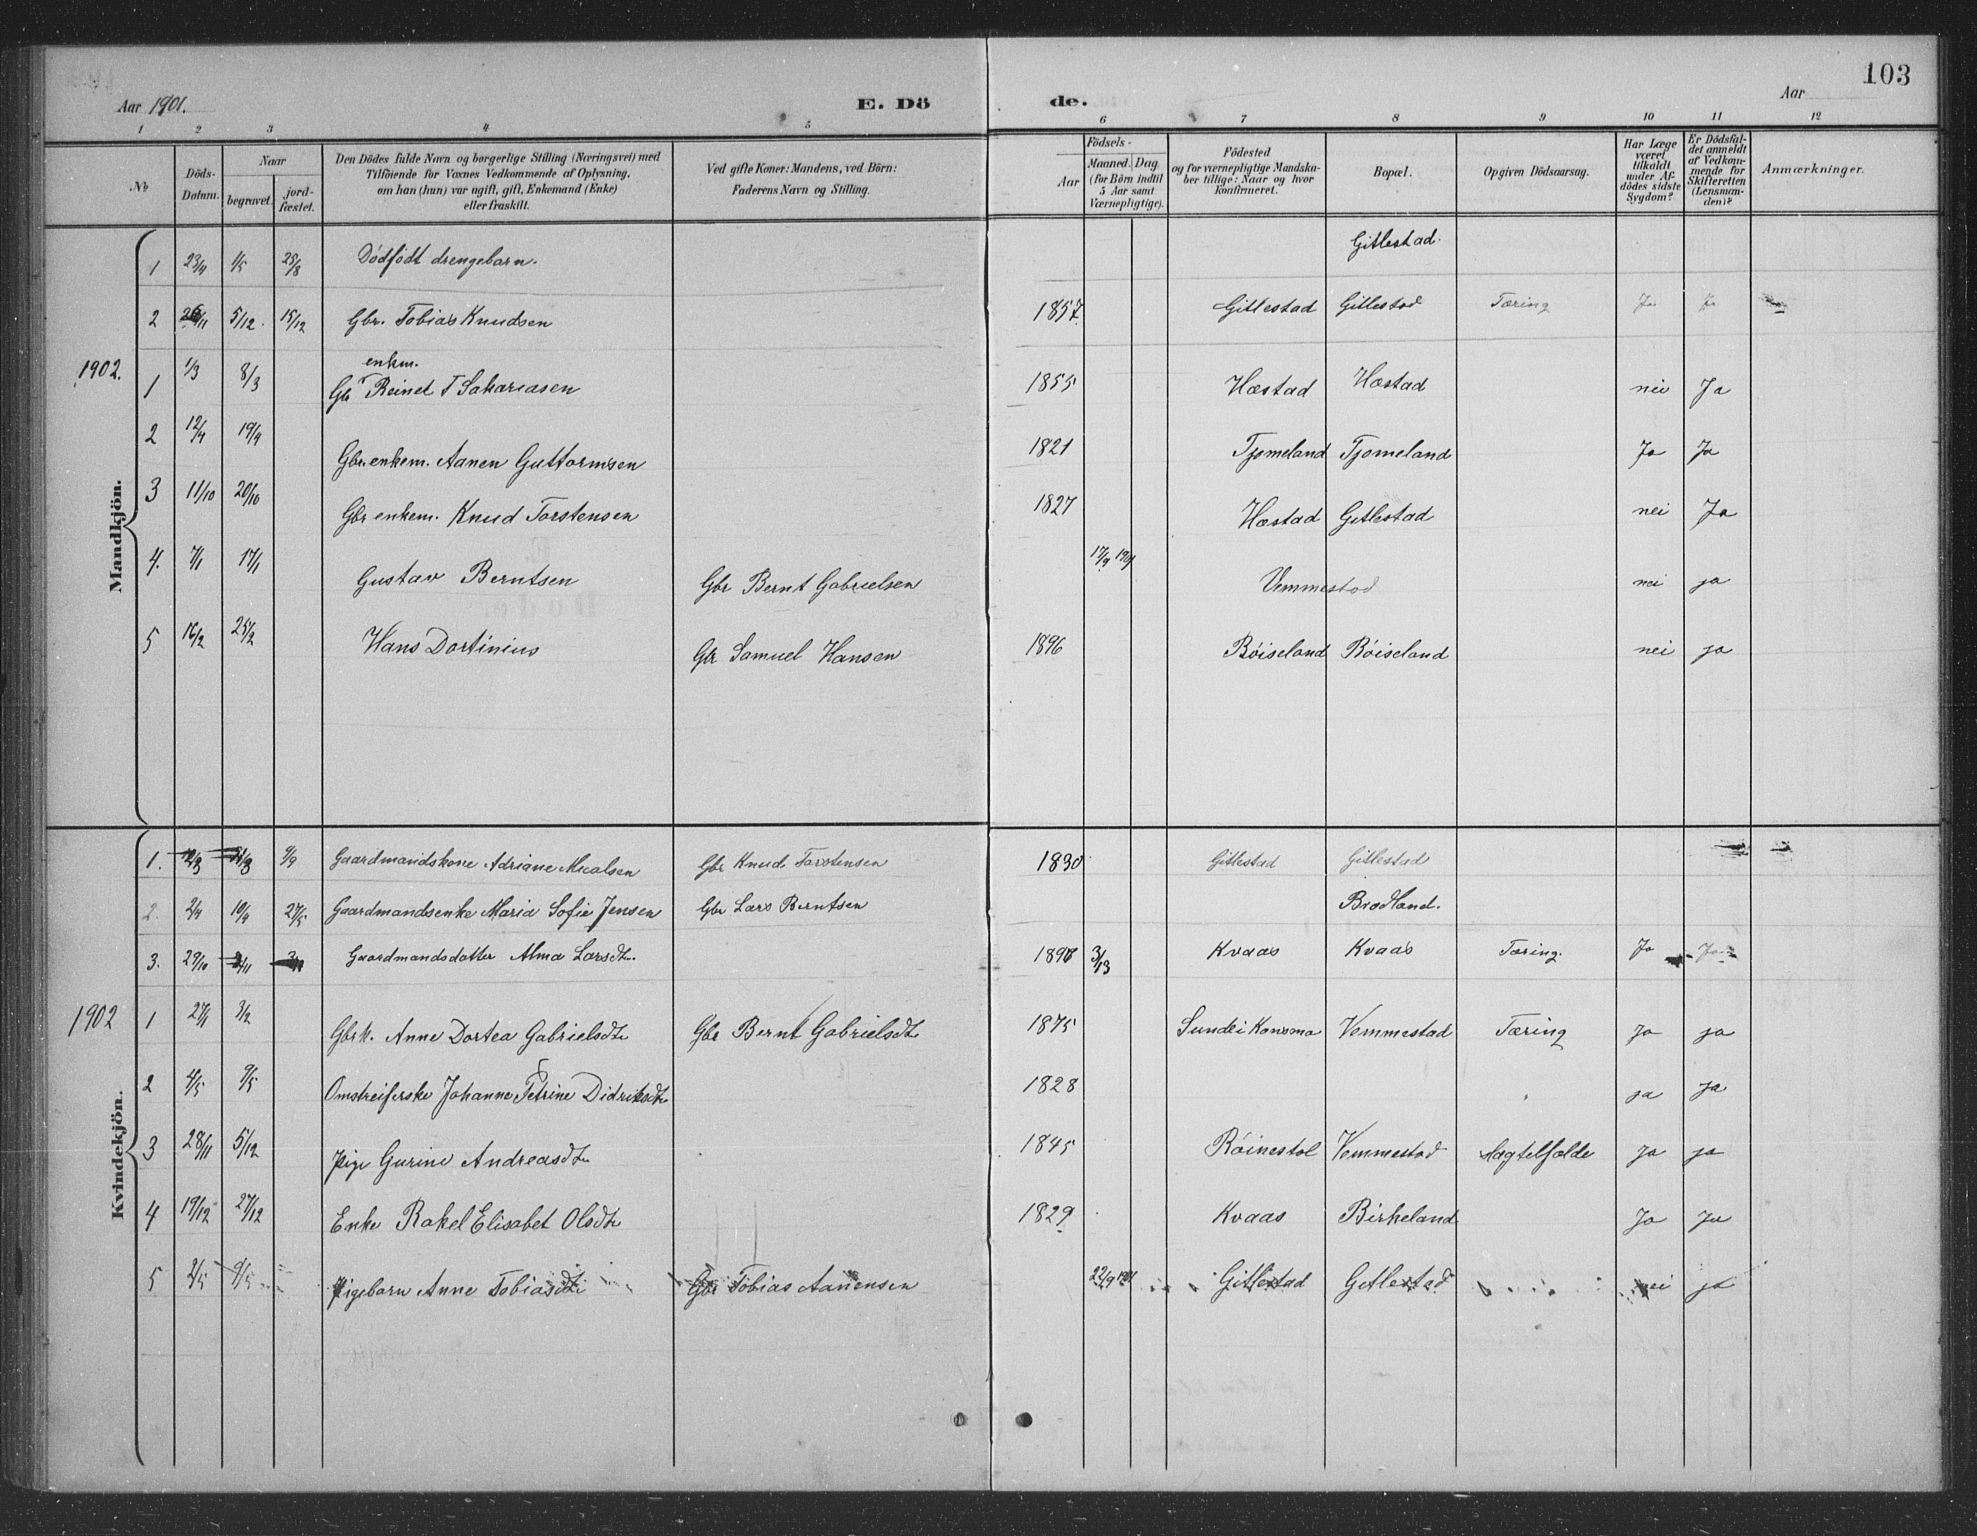 103
Aar 1901. E. Dö de. Aar
1 2 3 4 5 6 7 8 9 10 11 12
No Döds-Datum. Naar begravet. jord-fæstet. Den Dödes fulde Navn og borgerlige Stilling (Næringsvei) med Tilföiende for Voxnes Vedkommende af Oplysning, om han (hun) var ugift, gift, Enkemand (Enke) eller fraskilt. Ved gifte Koner: Mandens, ved Börn: Faderens Navn og Stilling. Födsels- Aar Maaned. Dag. (for Börn indtil 5 Aar samt Værnepligtige). Födested og for værnepligtige Mandska-ber tillige: Naar og hvor Konfirmeret. Bopæl. Opgiven Dödsaarsag. Har Læge været tilkaldt under Af-dödes sidste Sygdom? Er Dödsfal-det anmeldt af Vedkom-mende for Skifteretten (Lensman-den)? Anmærkninger.
Mandkjön.
1 23/4 1/5 25/8 Dödfödt drengebarn. Gitlestad.
2 26/11 5/12. 15/12 Gbr. Tobias Knudsen 1857 Gitlestad Gitlestad Tæring Ja Ja
1902. 1 1/3 8/3 Gbr enkm. Reinel T Sakariasen 1855 Hæstad Hæstad nei Ja
2 12/4 19/4 Gbr. enkem. Aanen Guttormsen 1821 Tjomeland Tjomeland Ja Ja
3 11/10 20/10 Gbr enkem. Knud Torstensen 1827 Hæstad Gitlestad nei Ja
4. 7/1 17/1 Gustav Berntsen Gbr Bernt Gabrielsen 17/9 1901 Vemmestad nei ja
5 16/2 25/2 Hans Dortinius Gbr Samuel Hansen 1896 Röiseland Röiseland nei ja
Kvindekjön.
1. 12/3 21/3 9/9 Gaardmandskone Adriane Micalsen Gbr Knud Torstensen 1830 Gitlestad Gitlestad
2. 2/4 10/4 27/5 Gaardmandsenke Maria Sofie Jensen Gbr Lars Berntsen Bradland.
3. 29/10 Gaardmandsdatter Alma Larsdt. 3/13 Kvaas Kvaas Tæring. Ja Ja
1902 1 27/1 3/2 Gbrk. Anne Dortea Gabrielsdt. Gbr Bernt Gabrielsdt. 1875 Sunde i Konsmo Vemmestad Tæring Ja ja
2 4/5 9/5 Omstreiferske Johanne Petrine Didriksdt. 1828 ja ja
3 28/11 5/12 Pige Gurine Andreasdt. 1845 Röinestol Vemmestad Slagtelfælde Ja ja
4 19/12 27/12 Enke Rakel Elisabet Olsdt. 1829 Kvaas Birkeland Ja Ja
5 2/5 9/5 Pigebarn Anne Tobiasdt. Gbr Tobias Aanensen 22/9 1901 Gitlestad Gitlestad nei ja